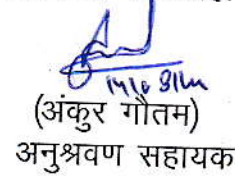 (अंकुर गौतम)
अनुश्रवण सहायक